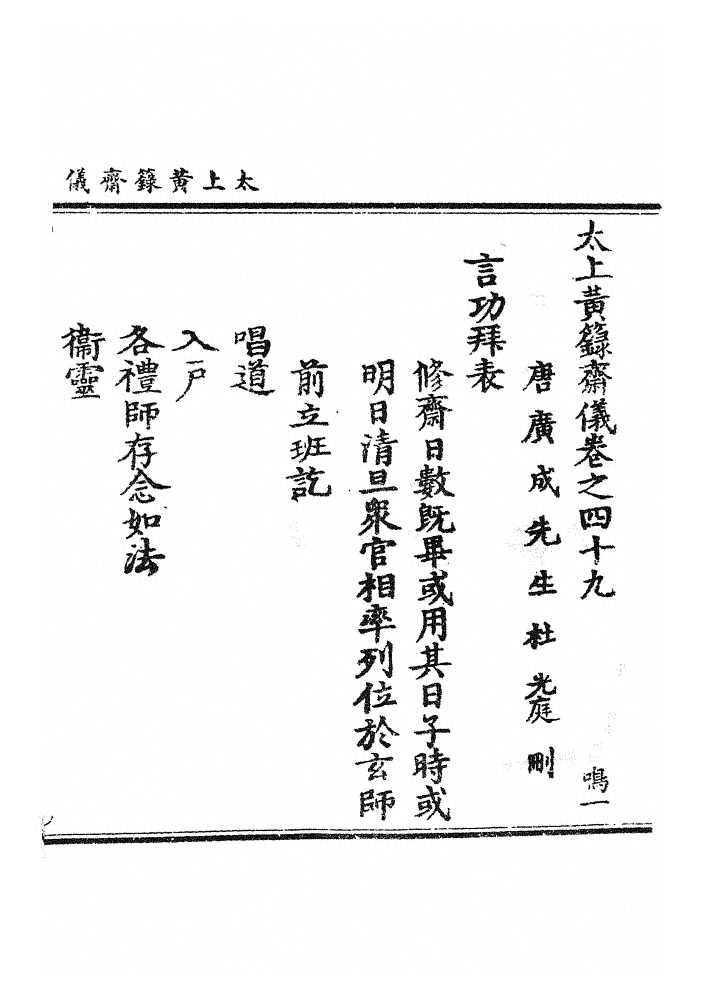 太上黃籙齋儀
太上黃籙齋儀卷之四十九 鳴一
唐廣成先生杜光庭刪
言功拜表
修齋日數既畢或用其日子時或
明日清旦眾官相率列位於玄師
前立班訖
唱道
入戶
各禮師存念如法
衞靈